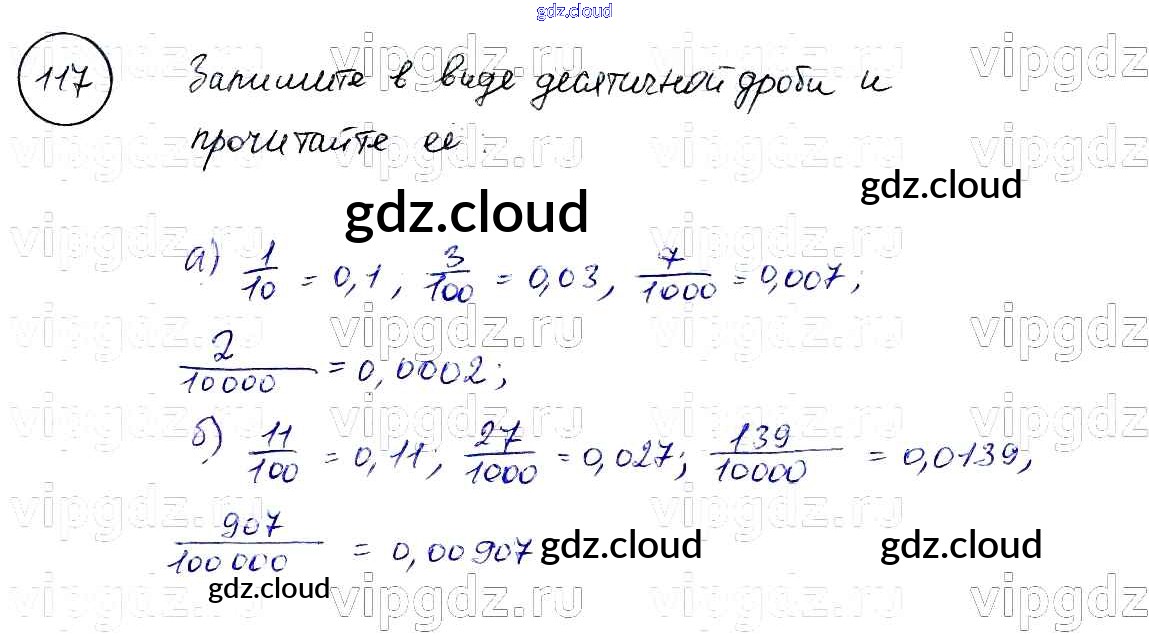 gdz.cloud
117 Запишите в виде десятичной дроби и
прочитайте её.
gdz.cloud
gdz.cloud
а) 1/10 = 0,1, 3/100 = 0,03, 7/1000 = 0,007;
2/10000 = 0,0002;
б) 11/100 = 0,11; 27/1000 = 0,027; 139/10000 = 0,0139,
907/100000 = 0,00907 gdz.cloud gdz.cloud
gdz.cloud
vipgdz.ru vipgdz.ru vipgdz.ru vipgdz.ru
vipgdz.ru vipgdz.ru vipgdz.ru vipgdz.ru
vipgdz.ru vipgdz.ru vipgdz.ru vipgdz.ru
vipgdz.ru vipgdz.ru vipgdz.ru vipgdz.ru
vipgdz.ru vipgdz.ru vipgdz.ru vipgdz.ru
vipgdz.ru vipgdz.ru vipgdz.ru vipgdz.ru
vipgdz.ru vipgdz.ru vipgdz.ru vipgdz.ru